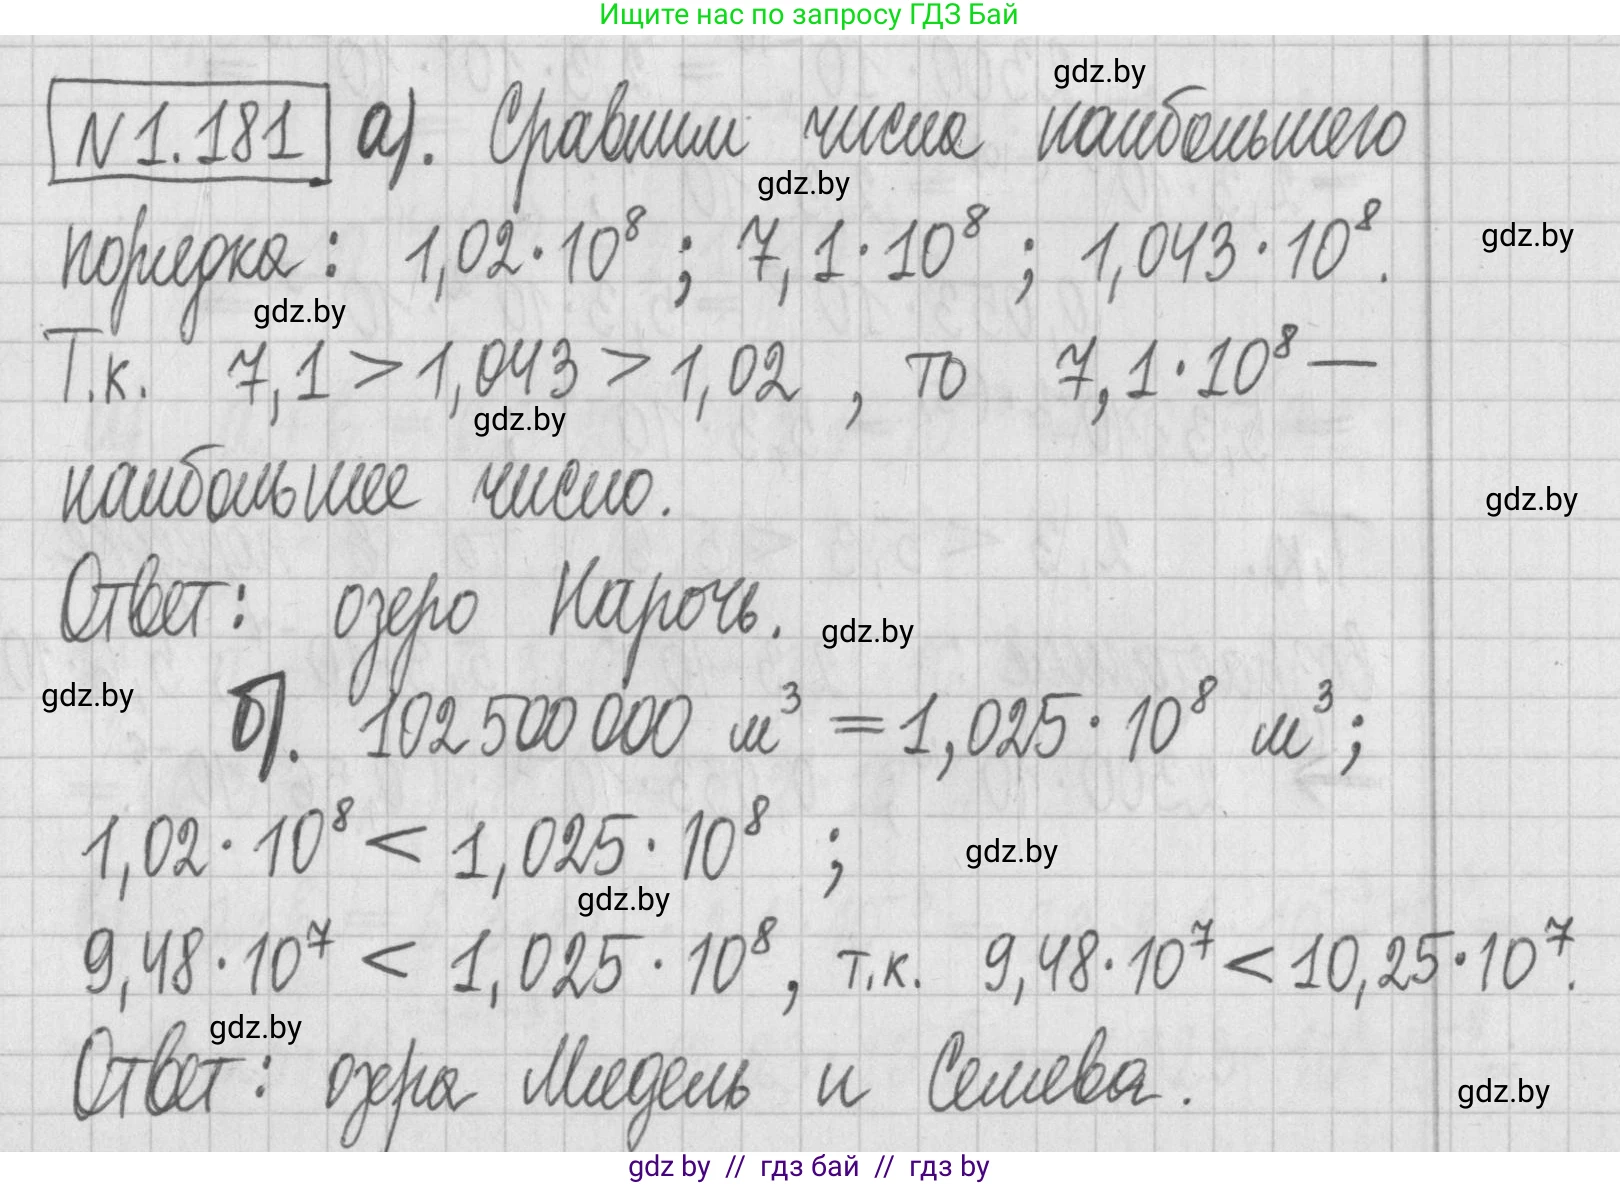 Ищите нас по запросу ГДЗ Бай
gdz.by
N 1.181 а). Сравним числа наибольшего
gdz.by
порядка: 1,02·10⁸ ; 7,1·10⁸ ; 1,043·10⁸.
gdz.by
gdz.by
Т.к. 7,1 > 1,043 > 1,02 , то 7,1·10⁸ —
gdz.by
наибольшее число.
gdz.by
Ответ: озеро Нарочь.
gdz.by
gdz.by
б). 102 500 000 м³ = 1,025·10⁸ м³ ;
1,02·10⁸ < 1,025·10⁸ ;
gdz.by
gdz.by
9,48·10⁷ < 1,025·10⁸, т.к. 9,48·10⁷ < 10,25·10⁷.
gdz.by
Ответ: озёра Мядель и Селява.
gdz.by
gdz by // гдз бай // гдз by